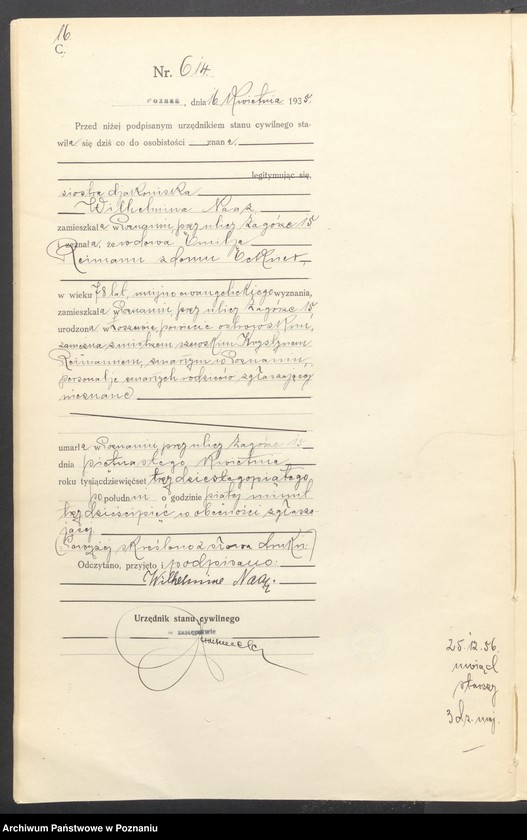 16
C.
Nr. 614.
POZNAŃ, dnia 16 Kwietnia 1935.
Przed niżej podpisanym urzędnikiem stanu cywilnego sta-
wiła się dziś co do osobistości znana,
legitymując się,
siostra djakoniska
Wilhelmina Naaz,
zamieszkała w Poznaniu, przy ulicy Zagórze 15
i zeznała, że wdowa Emilja
Reimann z domu
w wieku 78 lat, ewangelickiego wyznania,
zamieszkała w Poznaniu przy ulicy Zagórze 15
urodzona w powiecie
zamężna z mistrzem szewskim Krystjanem
Reimannem, zmarłym w Poznaniu,
personalje zmarłych rodziców zgłaszającej
nieznane
umarła w Poznaniu przy ulicy Zagórze 15
dnia piętnastego Kwietnia
roku tysiącdziewięćset trzydziestegopiątego
po południu o godzinie piątej minut
trzydzieścipięć w obecności zgłasza-
jącej.
Powyżej skreślono 2 słowa druku.
Odczytano, przyjęto i podpisano:
Wilhelmine Naaz.
Urzędnik stanu cywilnego
w zastępstwie
25.12.56.
uwiąd
starczy
3 dz. maj.
Archiwum Państwowe w Poznaniu